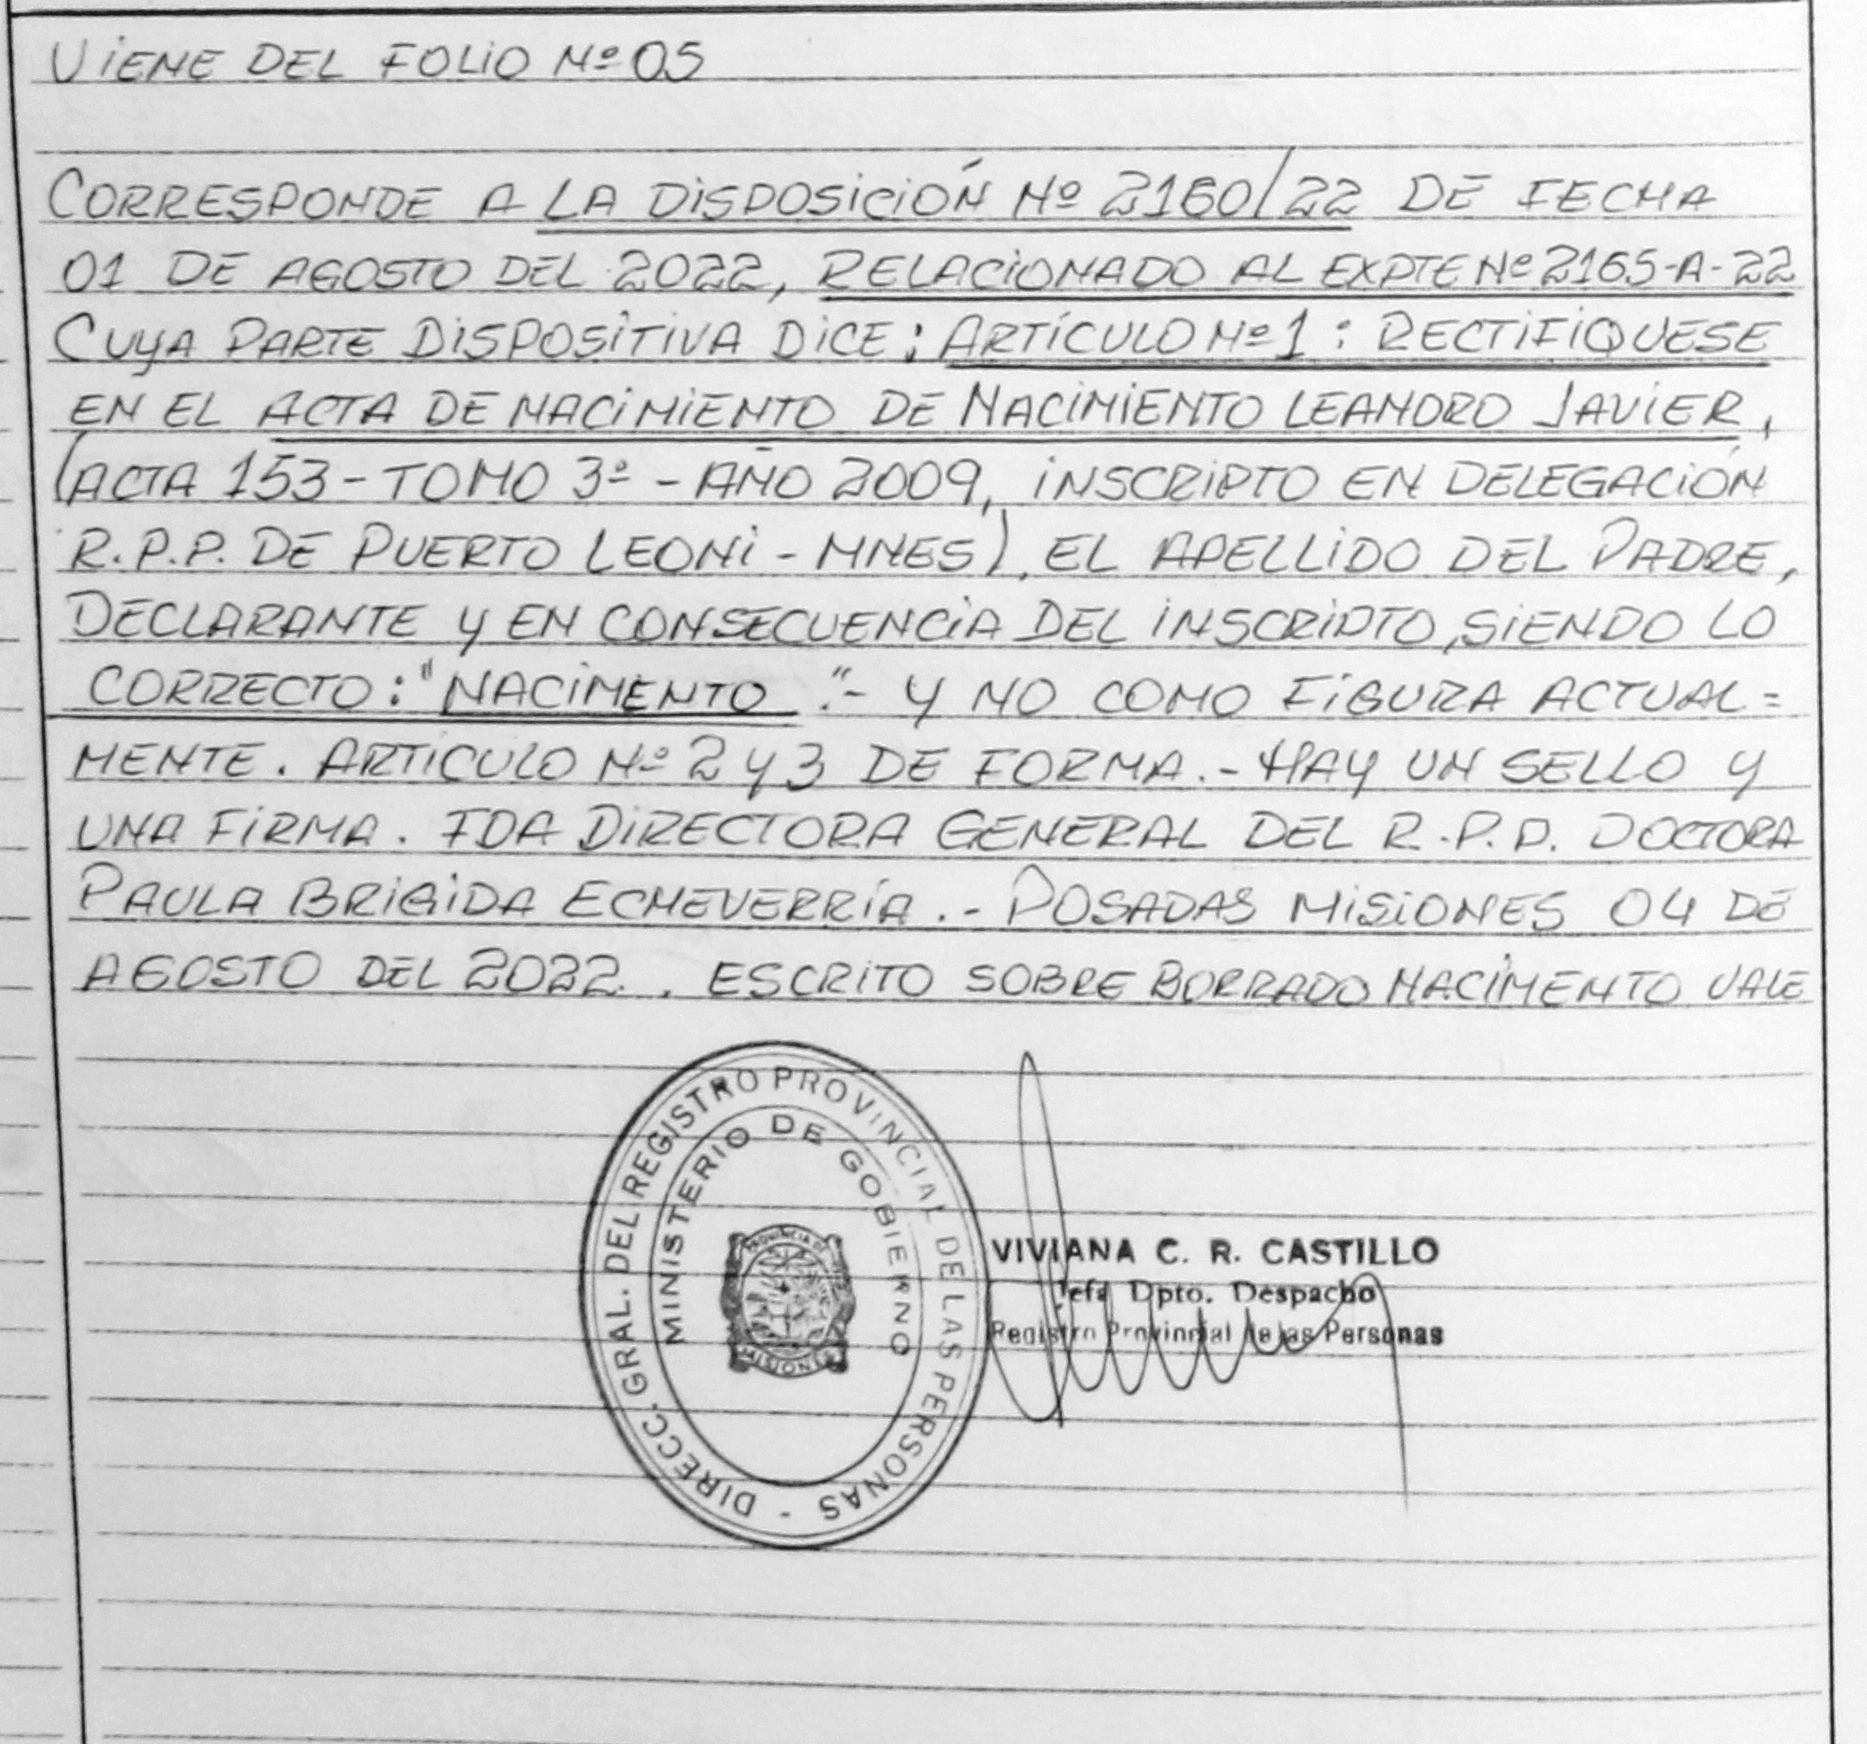 VIENE DEL FOLIO Nº 05
CORRESPONDE A LA DISPOSICIÓN Nº 2160/22 DE FECHA
01 DE AGOSTO DEL 2022, RELACIONADO AL EXPTE Nº 2165-A-22
CUYA PARTE DISPOSITIVA DICE: ARTÍCULO Nº 1: RECTIFIQUESE
EN EL ACTA DE NACIMIENTO DE NACIMIENTO LEANDRO JAVIER,
(ACTA 153 - TOMO 3º - AÑO 2009, INSCRIPTO EN DELEGACIÓN
R.P.P. DE PUERTO LEONI - MNES), EL APELLIDO DEL PADRE,
DECLARANTE Y EN CONSECUENCIA DEL INSCRIPTO, SIENDO LO
CORRECTO: "NACIMENTO".- Y NO COMO FIGURA ACTUAL=
MENTE. ARTICULO Nº 2 Y 3 DE FORMA.- HAY UN SELLO Y
UNA FIRMA. FDA DIRECTORA GENERAL DEL R.P.P. DOCTORA
PAULA BRIGIDA ECHEVERRÍA.- POSADAS MISIONES 04 DE
AGOSTO DEL 2022. ESCRITO SOBRE BORRADO NACIMENTO VALE
DIRECC. GRAL. DEL REGISTRO PROVINCIAL DE LAS PERSONAS -
MINISTERIO DE GOBIERNO
PROVINCIA DE
MISIONES
VIVIANA C. R. CASTILLO
Jefa Dpto. Despacho
Registro Provincial de las Personas